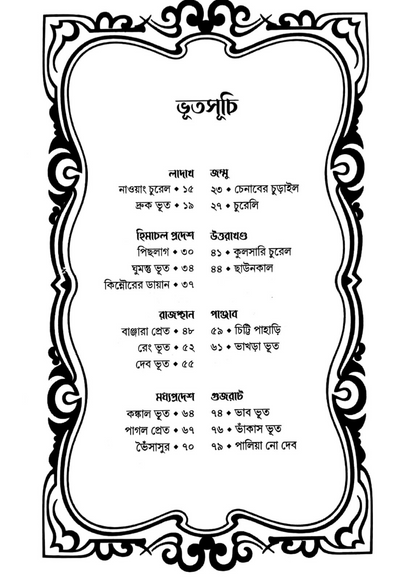 ভূতসূচি
লাদাখ
নাওয়াং চুরেল • ১৫
দ্রুক ভূত • ১৯
জম্মু
২৩ • চেনাবের চুড়াইল
২৭ • চুরেলি
হিমাচল প্রদেশ
পিছলাগ • ৩০
ঘুমন্তু ভূত • ৩৪
কিন্নৌরের ডায়ান • ৩৭
উত্তরাখণ্ড
৪১ • কুলসারি চুরেল
৪৪ • ছাউনকাল
রাজস্থান
বাঞ্জারা প্রেত • ৪৮
রেং ভূত • ৫২
দেব ভূত • ৫৫
পাঞ্জাব
৫৯ • চিট্টি পাহাড়ি
৬১ • ভাখড়া ভূত
মধ্যপ্রদেশ
কঙ্কাল ভূত • ৬৪
পাগল প্রেত • ৬৭
ভৈঁসাসুর • ৭০
গুজরাট
৭৪ • ভাব ভূত
৭৬ • ভাঁকাস ভূত
৭৯ • পালিয়া নো দেব